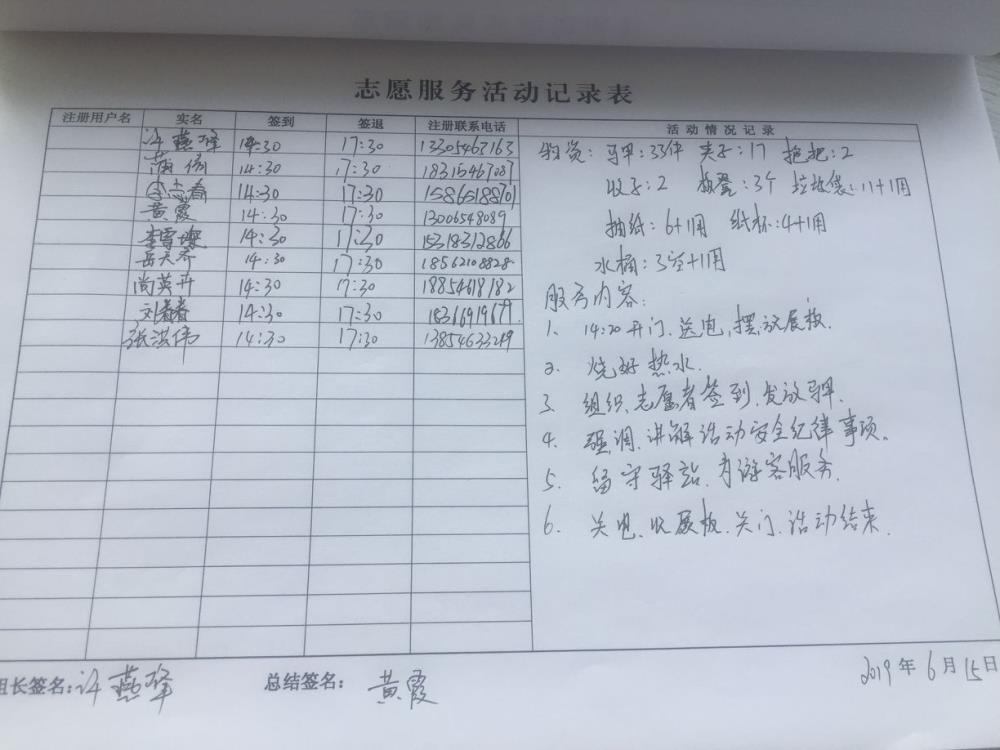 志愿服务活动记录表
注册用户名 实名 签到 签退 注册联系电话 活动情况记录
许燕峰 14:30 17:30 13305467163
14:30 17:30 18315467087
李志春 14:30 17:30 15865188701
黄霞 14:30 17:30 13006548089
李雪 14:30 17:30 15318312866
岳天乔 14:30 17:30 18562108828
尚英卉 14:30 17:30 18854618182
刘春春 14:30 17:30
张洪伟 14:30 17:30
物资: 马甲:33件 夹子:17 拖把:2
收子:2 板凳:3个 垃圾袋:11+1用
抽纸:6+1用 纸杯:4+1用
水桶:3空+1用
服务内容:
1. 14:20开门、送电、摆放展板.
2. 烧好热水.
3. 组织志愿者签到、发放马甲.
4. 强调、讲解活动安全纪律事项。
5. 留守驿站,为游客服务.
6. 关电、收展板、关门、活动结束.
组长签名:许燕峰 总结签名: 黄霞 2019年6月15日